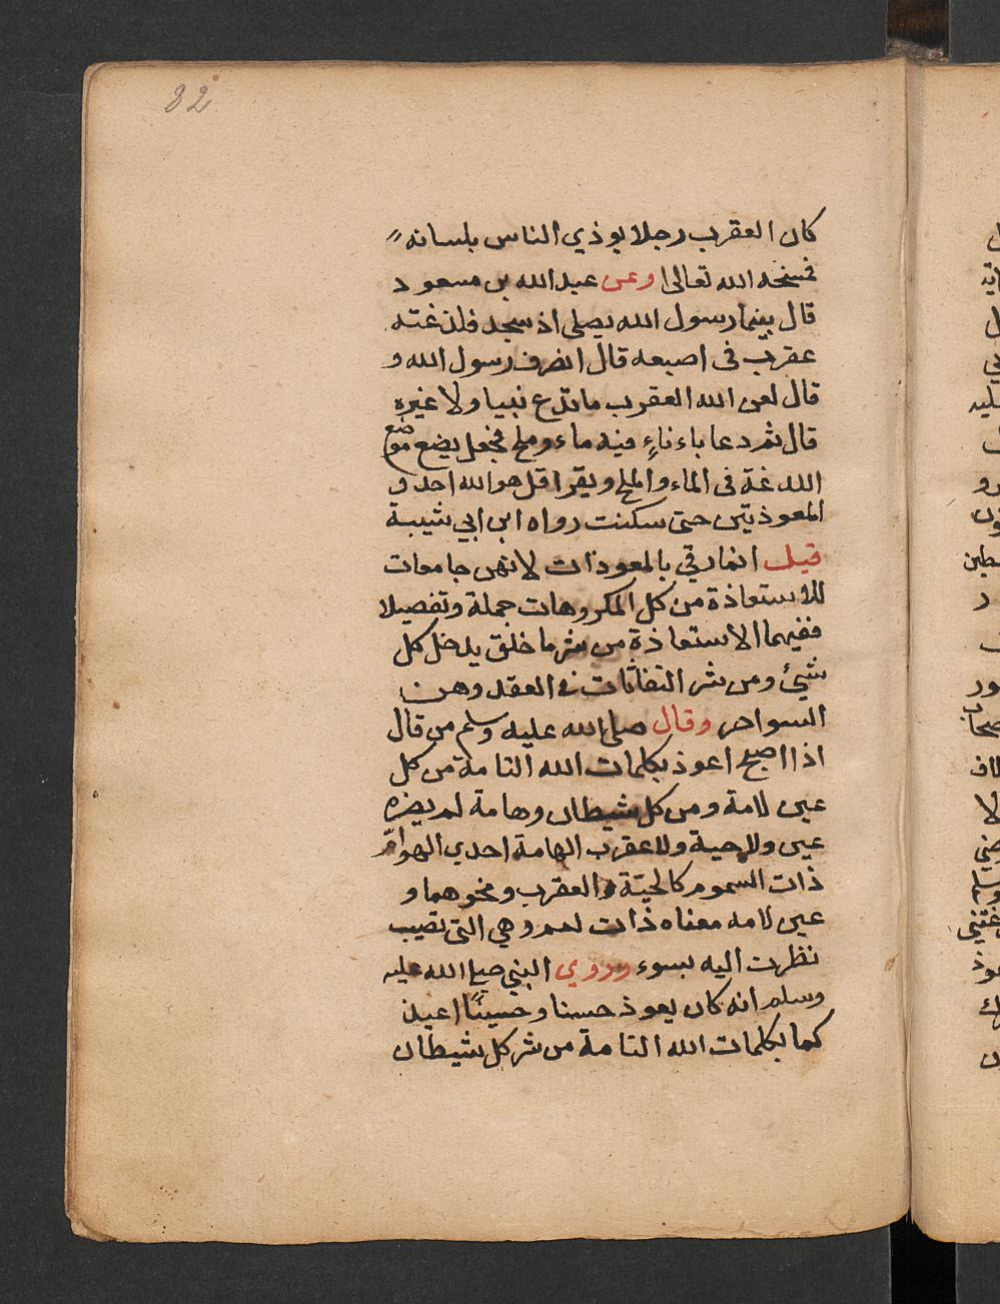 82
كان العقرب رجلا يوذي الناس بلسانه
فمسخه الله تعالى وعن عبد الله بن مسعود
قال بينما رسول الله يصلى اذ سجد فلذغته
عقرب فى اصبعه قال انصرف رسول الله و
قال لعن الله العقرب ماتدع نبيا ولا غيره
قال ثم دعا باءناءٍ فيه ماء وملح فجعل يضع موضع
اللدغة فى الماء والملح ويقرا قل هو الله احد و
المعوذيتين حتى سكنت رواه ابن ابي شيبة
قيل انما رقي بالمعوذات لانهن جامعات
للاستعاذة من كل المكروهات جملة وتفصيلا
ففيهما الاستعاذة من شر ما خلق يدخل كل
شيئ ومن شر النفاثات فى العقد وهن
السواحر وقال صلى الله عليه وسلم من قال
اذا اصبح اعوذ بكلمات الله التامة من كل
عين لامة ومن كل شيطان وهامة لم يضره
عين ولا حية ولا عقرب الهامة احدي الهوام
ذات السموم كالحية والعقرب ونحوهما و
عين لامه معناه ذات لمم وهي التى تصيب
نظرت اليه بسوء وروي النبي صلى الله عليه
وسلم انه كان يعوذ حسنا وحسينًا اعيذ
كما بكلمات الله التامة من شر كل شيطان